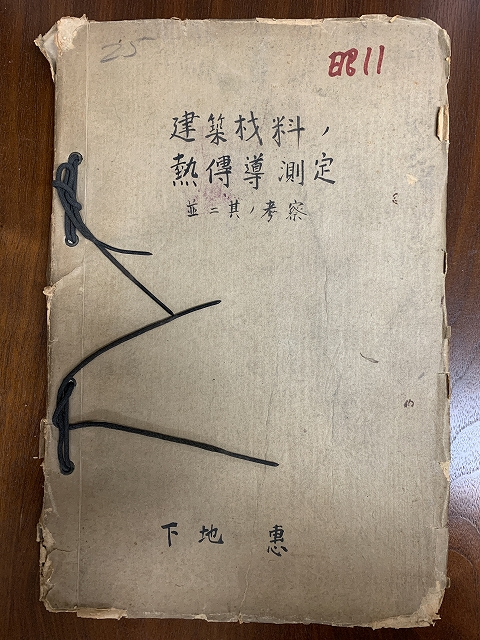 25
昭11
建築材料ノ
熱傳導測定
並ニ其ノ考察
下地 惠